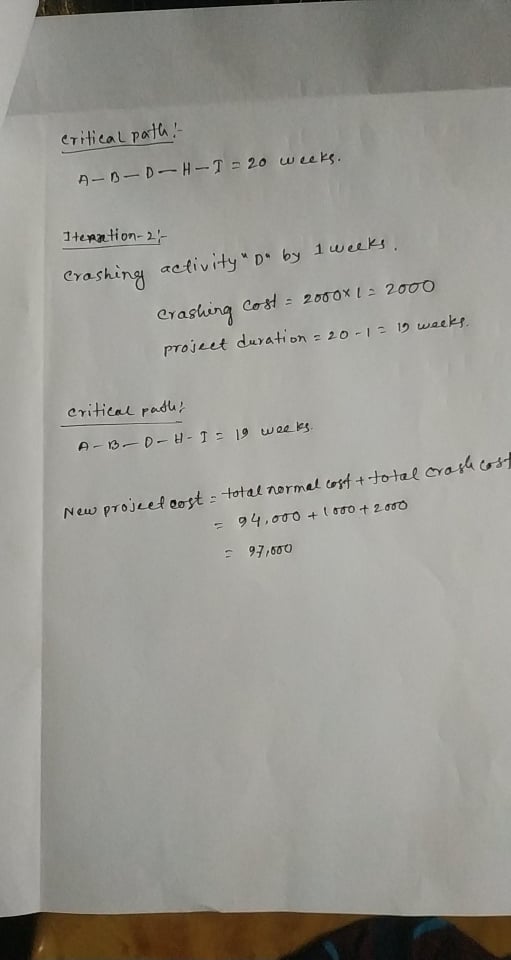 critical path :-
A-B-D-H-I = 20 weeks.
Iteration-2 :-
Crashing activity "D" by 1 weeks.
Crashing cost = 2000×1 = 2000
project duration = 20-1 = 19 weeks.
critical path :
A-B-D-H-I = 19 weeks.
New project cost = total normal cost + total crash cost
= 94,000 + 1000 + 2000
= 97,000